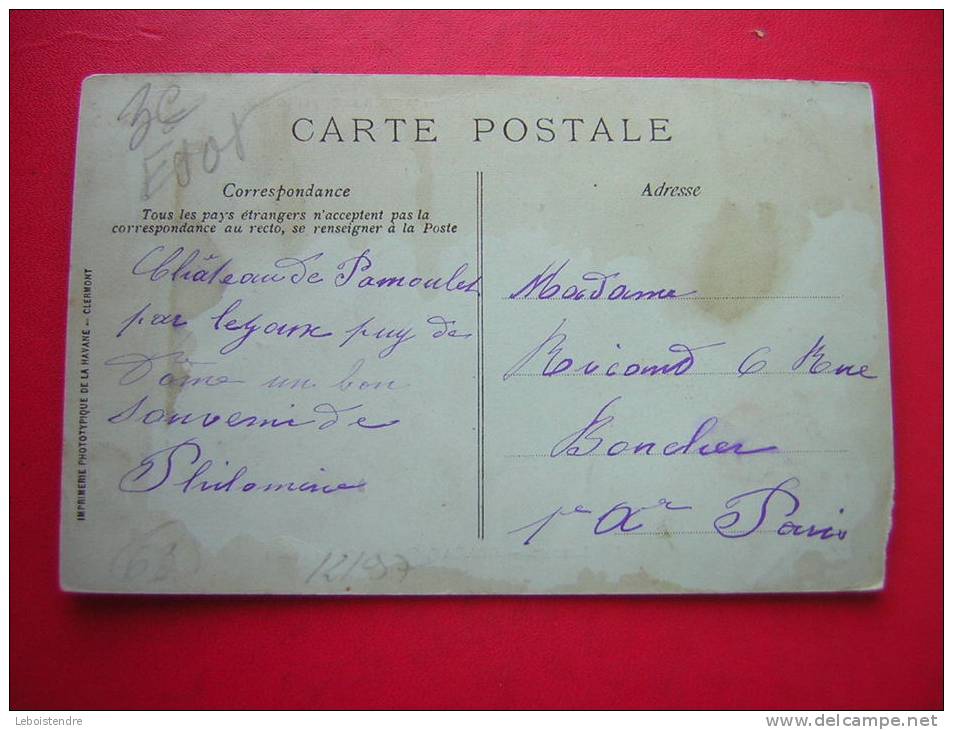 CARTE POSTALE
Correspondance
Tous les pays étrangers n'acceptent pas la
correspondance au recto, se renseigner à la Poste
Château de Pamoulet
par lezoux puy de
Dôme un bon
souvenir de
Philomine
Adresse
Madame
Ricand 6 Rue
Boucher
1er Ar Paris
IMPRIMERIE PHOTOTYPIQUE DE LA HAVANE — CLERMONT
63
12197
Leboistendre
www.delcampe.net